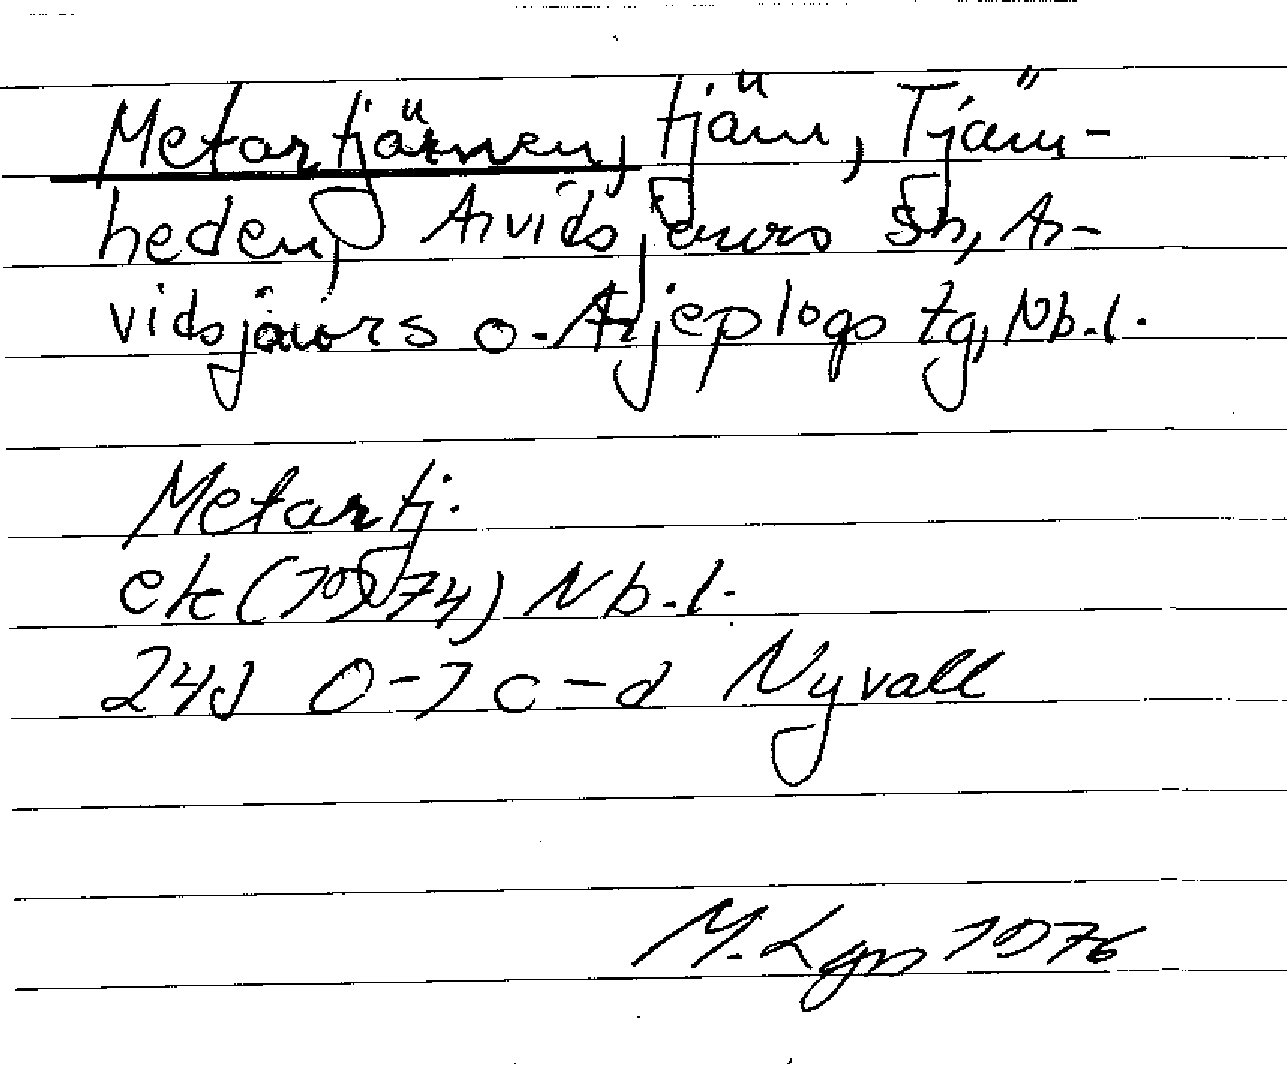 Metartjärnen, tjärn, Tjärn-
heden, Arvidsjaurs sn, Ar-
vidsjaurs o. Arjeplogs tg, Nb.l.
Metartj.
ek (1974) Nb.l.
24J 0-1 c-d Nyvall
M. Lgn 1976